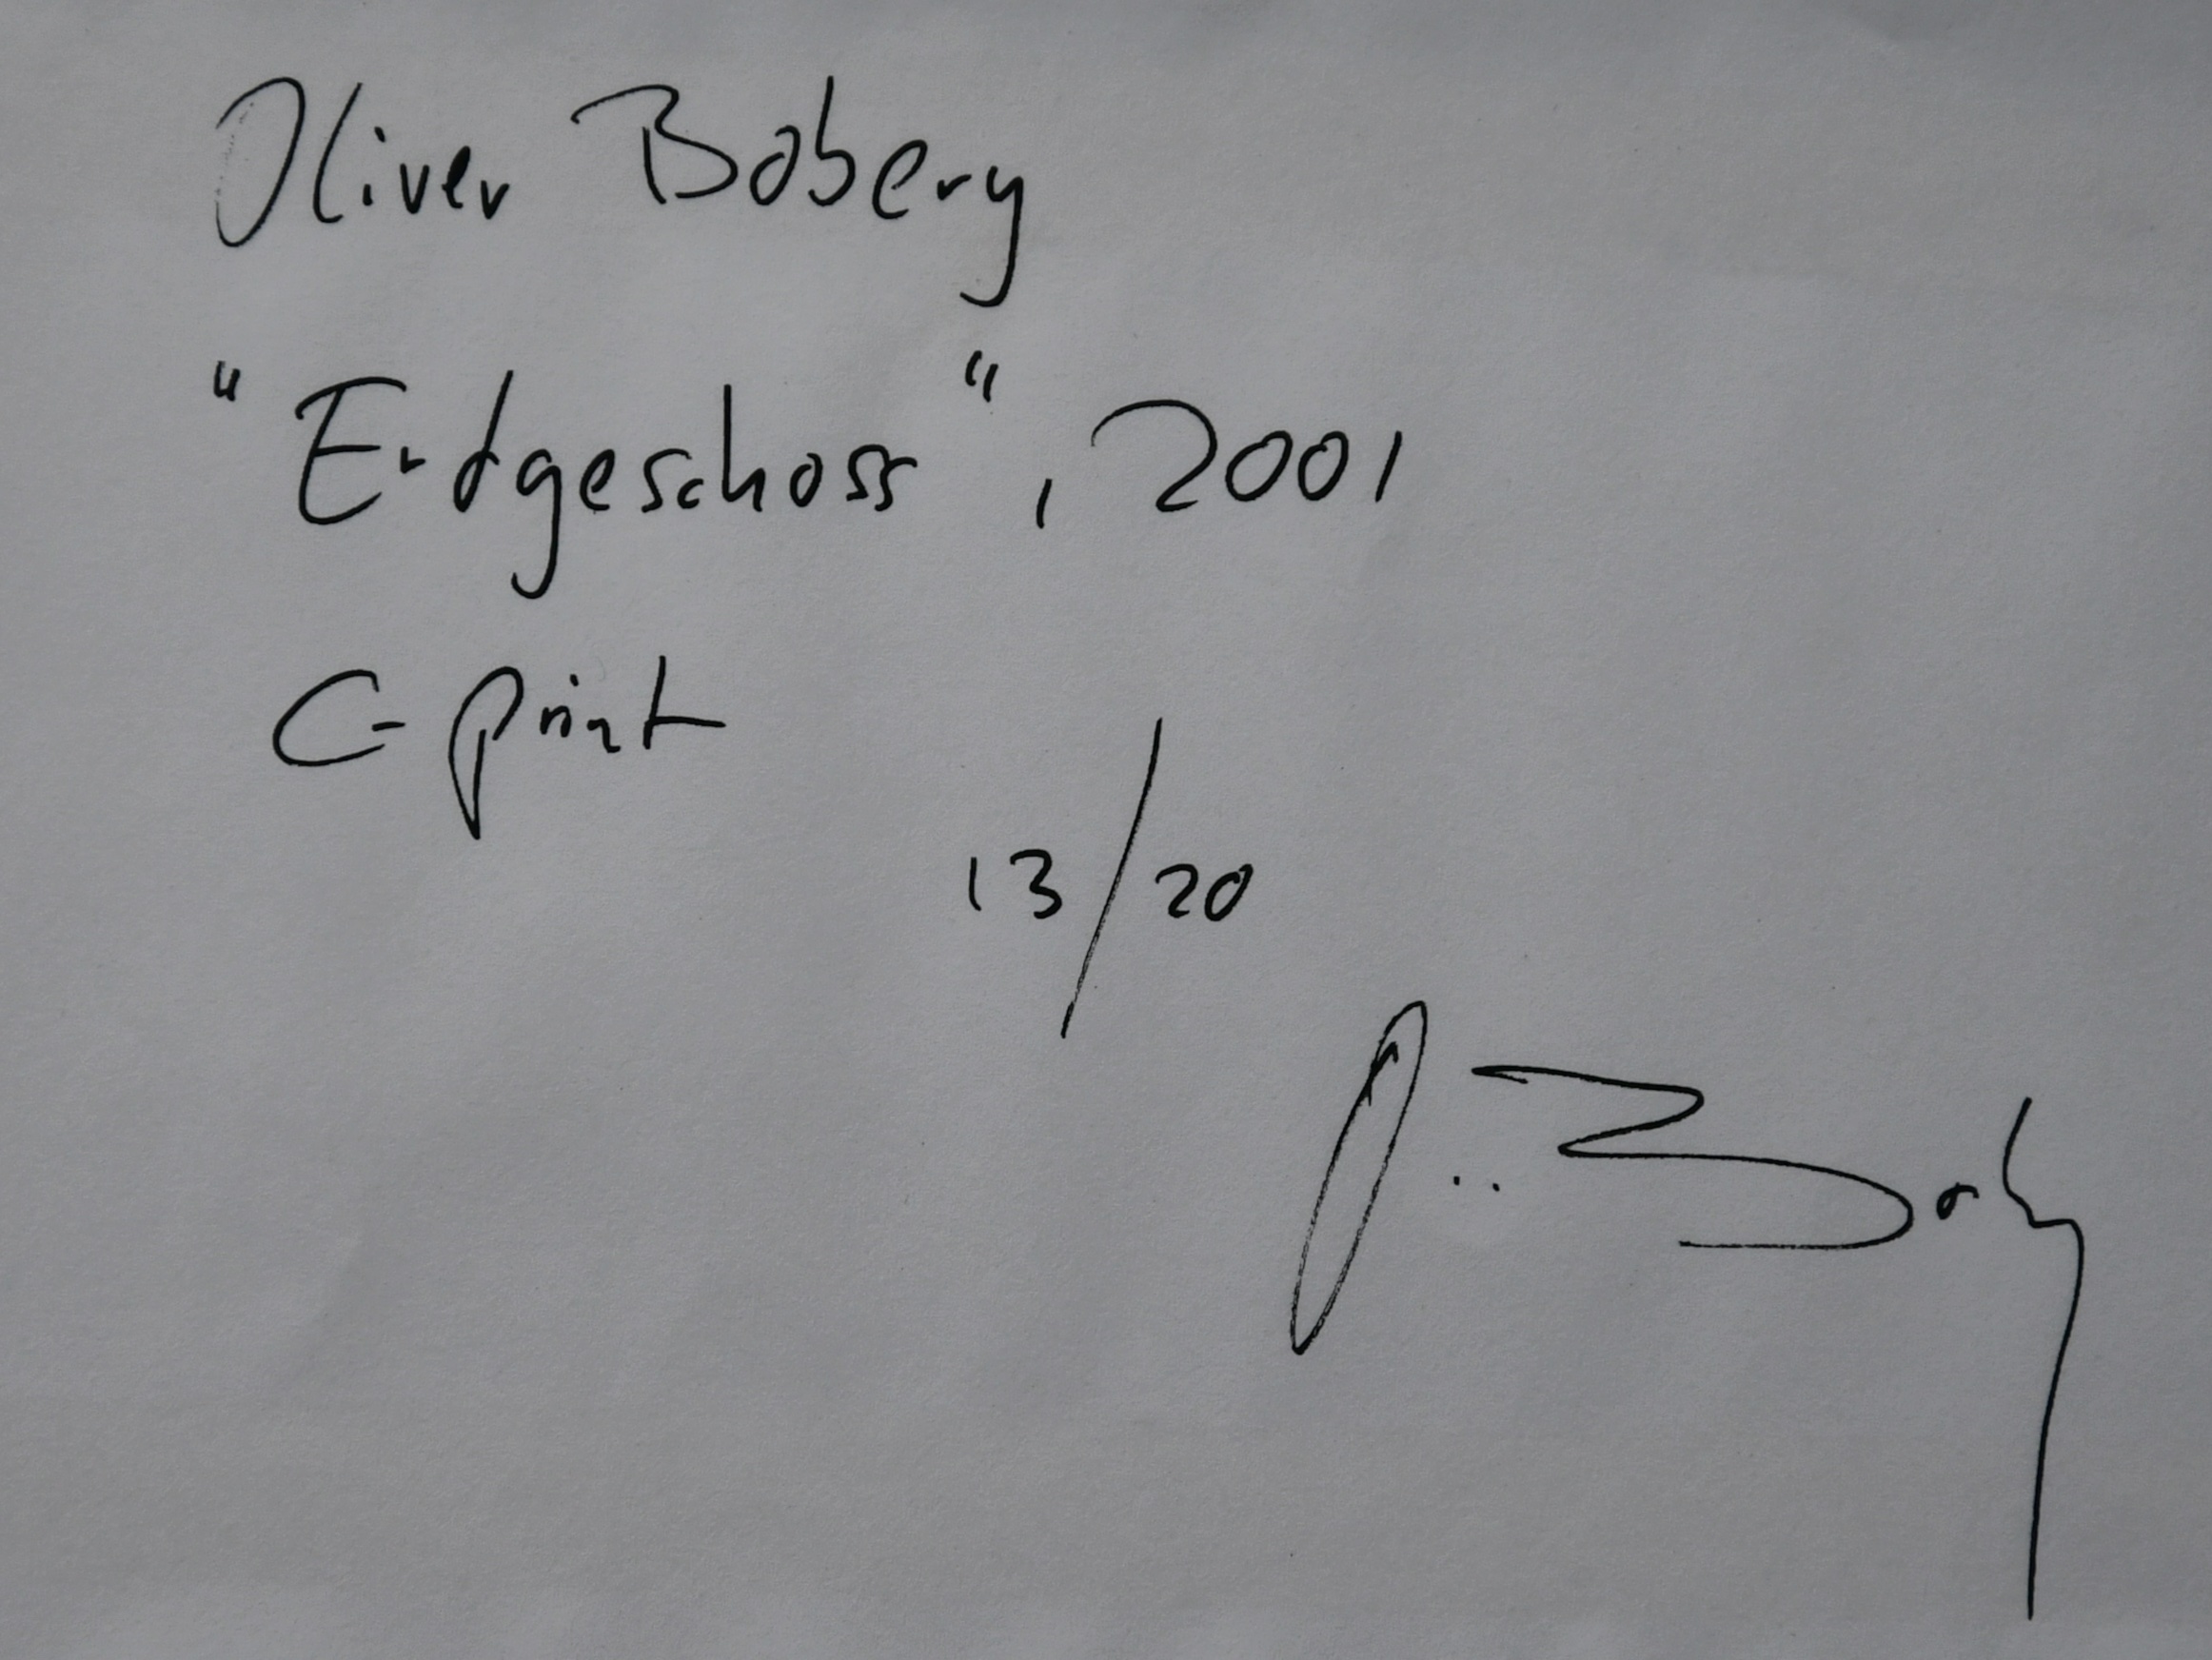 Oliver Boberg
"Erdgeschoss", 2001
C-print
13/20